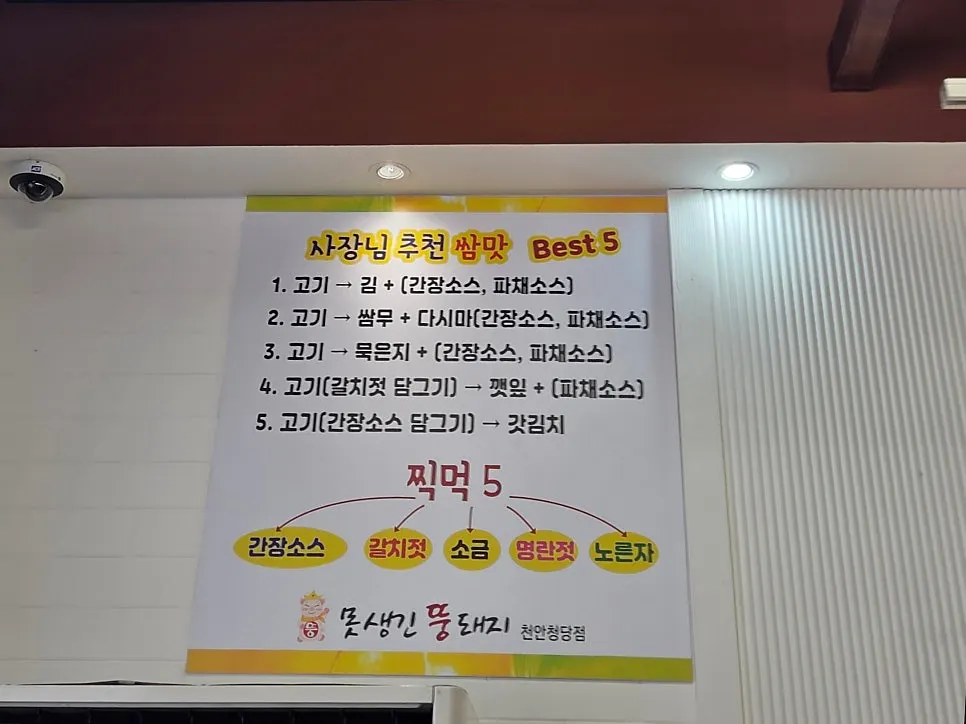 사장님 추천 쌈맛 Best 5
1. 고기 → 김 + (간장소스, 파채소스)
2. 고기 → 쌈무 + 다시마(간장소스, 파채소스)
3. 고기 → 묵은지 + (간장소스, 파채소스)
4. 고기(갈치젓 담그기) → 깻잎 + (파채소스)
5. 고기(간장소스 담그기) → 갓김치
찍먹 5
간장소스 갈치젓 소금 명란젓 노른자
뚱 못생긴 뚱돼지 천안청당점